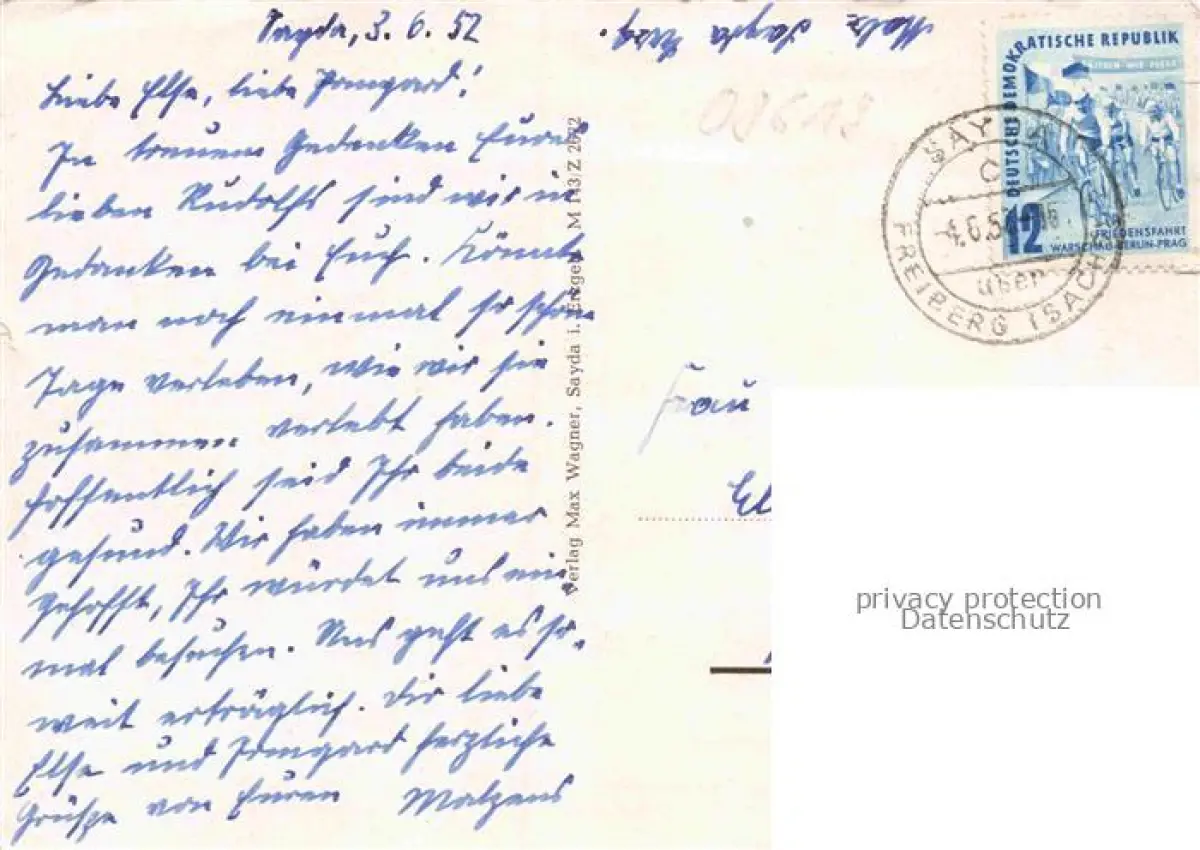 Sayda, 3.6.52
Liebe Else, liebe Irmgard!
In treuem Gedenken Eures
lieben Rudolfs sind wir in
Gedanken bei Euch. Könnte
man noch einmal so schöne
Tage verleben, wie wir sie
zusammen verlebt haben.
Hoffentlich seid Ihr beide
gesund. Wir haben immer
gehofft, Ihr würdet uns ein-
mal besuchen. Uns geht es so-
weit erträglich. Dir liebe
Else und Irmgard herzliche
Grüße von Euren Malzens
Verlag Max Wagner, Sayda i. Erzgeb. M 143/Z 2072
Malz Sayda Erzg.
09619
DEUTSCHE DEMOKRATISCHE REPUBLIK
12
FRIEDENSFAHRT
WARSCHAU-BERLIN-PRAG
SAYDA
über
FREIBERG (SACHS)
4.6.52
Frau
El
privacy protection
Datenschutz